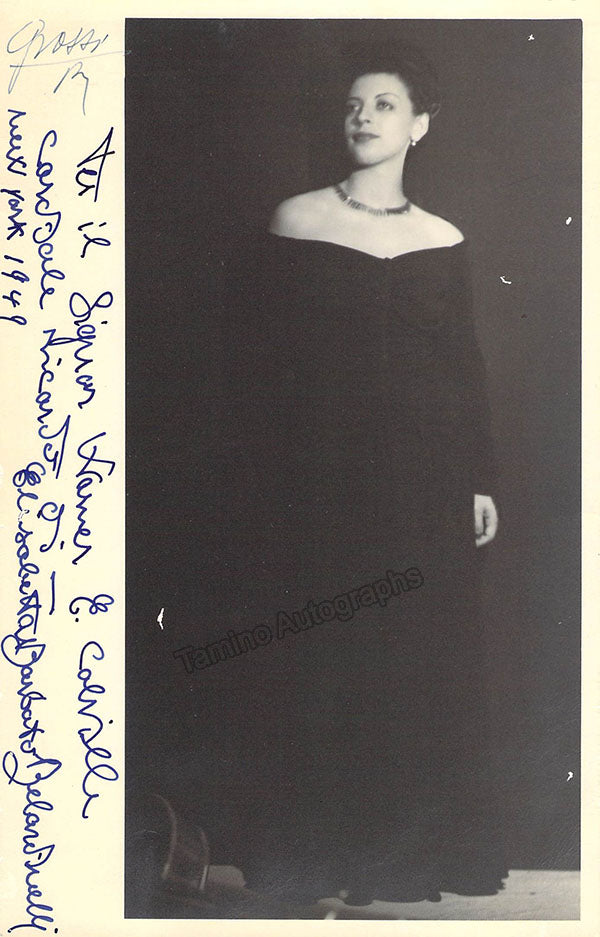 Grossi
Per il Signor Warner E. Colville
Cordiale ricordo di —
Elisabetta Barbato Belardinelli
New York 1949
Tamino Autographs